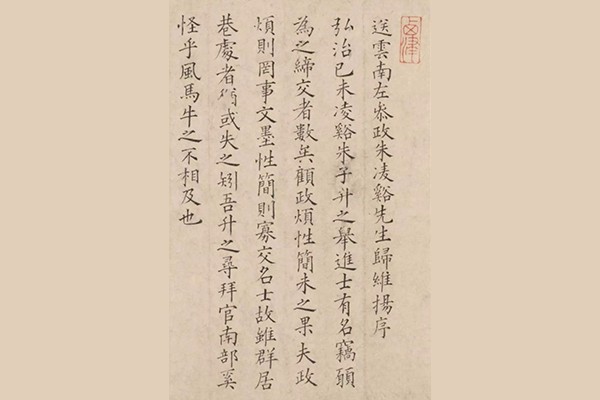 送雲南左叅政朱凌谿先生歸維揚序
弘治己未凌谿朱子升之舉進士有名竊願
為之締交者數矣顧政煩性簡未之果夫政
煩則罔事文墨性簡則寡交名士故雖群居
巷處者或失之矧吾升之尋拜官南部奚
怪乎風馬牛之不相及也